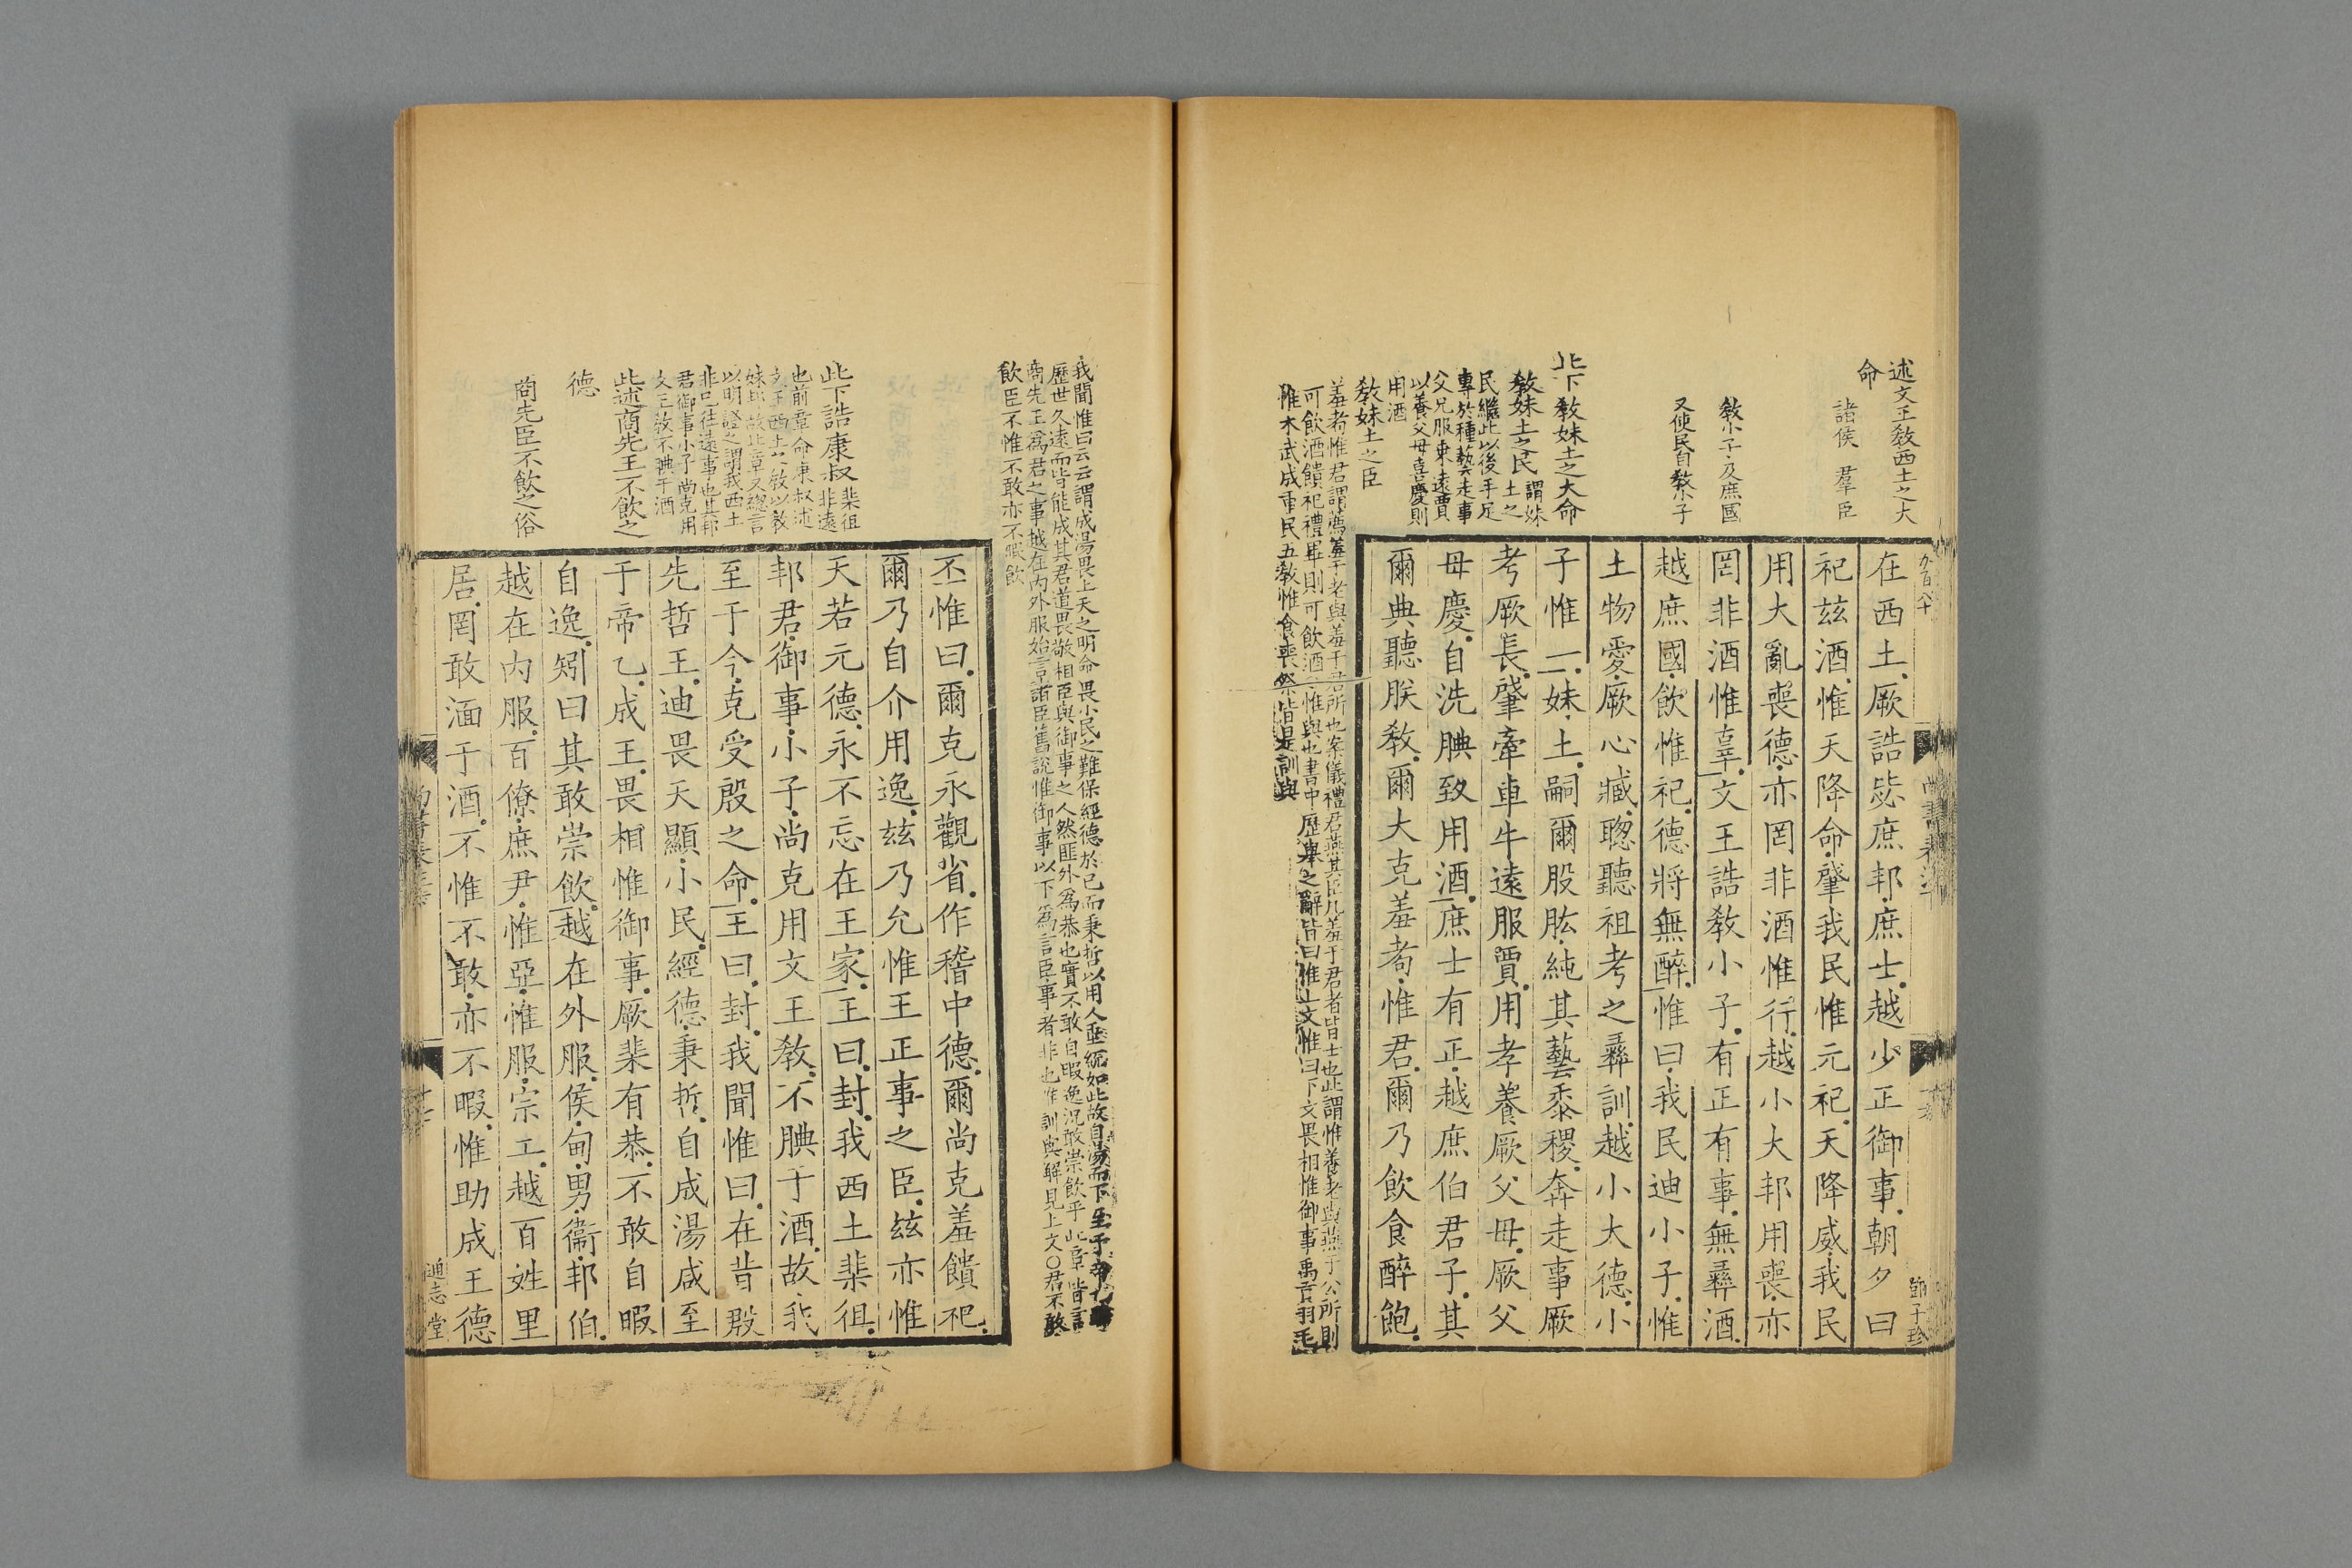 述文王敎西土之大
命
諸侯　羣臣
敎小子及庶國
又使民自敎小子
此下敎妹土之大命
敎妹土之民謂妹
土之
民繼此以後手足
專於種藝走事
父兄服東遠賈
以養父母喜慶則
用酒
敎妹土之臣
在西土厥誥毖庶邦庶士越少正御事朝夕曰
祀玆酒惟天降命肇我民惟元祀天降威我民
用大亂喪德亦罔非酒惟行越小大邦用喪亦
罔非酒惟辜文王誥敎小子有正有事無彝酒
越庶國飮惟祀德將無醉惟曰我民迪小子惟
土物愛厥心臧聰聽祖考之彝訓越小大德小
子惟一妹土嗣爾股肱純其藝黍稷奔走事厥
考厥長肇牽車牛遠服賈用孝養厥父母厥父
母慶自洗腆致用酒庶士有正越庶伯君子其
爾典聽朕敎爾大克羞耇惟君爾乃飮食醉飽
羞耇惟君謂薦羞于老與羞于君所也案儀禮君燕其臣凡羞于君者皆士也此謂惟養老與燕于公所則
可飮酒饋祀禮畢則可飮酒惟與也書中歷舉之辭皆曰惟上文惟曰下文畏相惟御事禹貢羽毛
惟木武成重民五敎惟食喪祭皆是訓與
我聞惟曰云云謂成湯畏上天之明命畏小民之難保經德於己而秉哲以用人垂統如此故自湯而下至于帝乙
歷世久遠而皆能成其君道畏敬相臣與御事之人然匪外爲恭也實不敢自暇逸況敢崇飮乎此章皆言
商先王爲君之事越在內外服始言諸臣舊說惟御事以下爲言臣事者非也惟訓與解見上文〇君不敢
飮臣不惟不敢亦不暇飮
此下誥康叔棐徂
非遠
也前章命康叔述
文王西土之敎以敎
妹邦故此章又總言
以明證之謂我西土
非已往遠事也其邦
君御事小子尚克用
文王敎不腆于酒
此述商先王不飮之
德
商先臣不飮之俗
丕惟曰爾克永觀省作稽中德爾尚克羞饋祀
爾乃自介用逸玆乃允惟王正事之臣玆亦惟
天若元德永不忘在王家王曰封我西土棐徂
邦君御事小子尚克用文王敎不腆于酒故我
至于今克受殷之命王曰封我聞惟曰在昔殷
先哲王迪畏天顯小民經德秉哲自成湯咸至
于帝乙成王畏相惟御事厥棐有恭不敢自暇
自逸矧曰其敢崇飮越在外服侯甸男衞邦伯
越在內服百僚庶尹惟亞惟服宗工越百姓里
居罔敢湎于酒不惟不敢亦不暇惟助成王德
通志堂